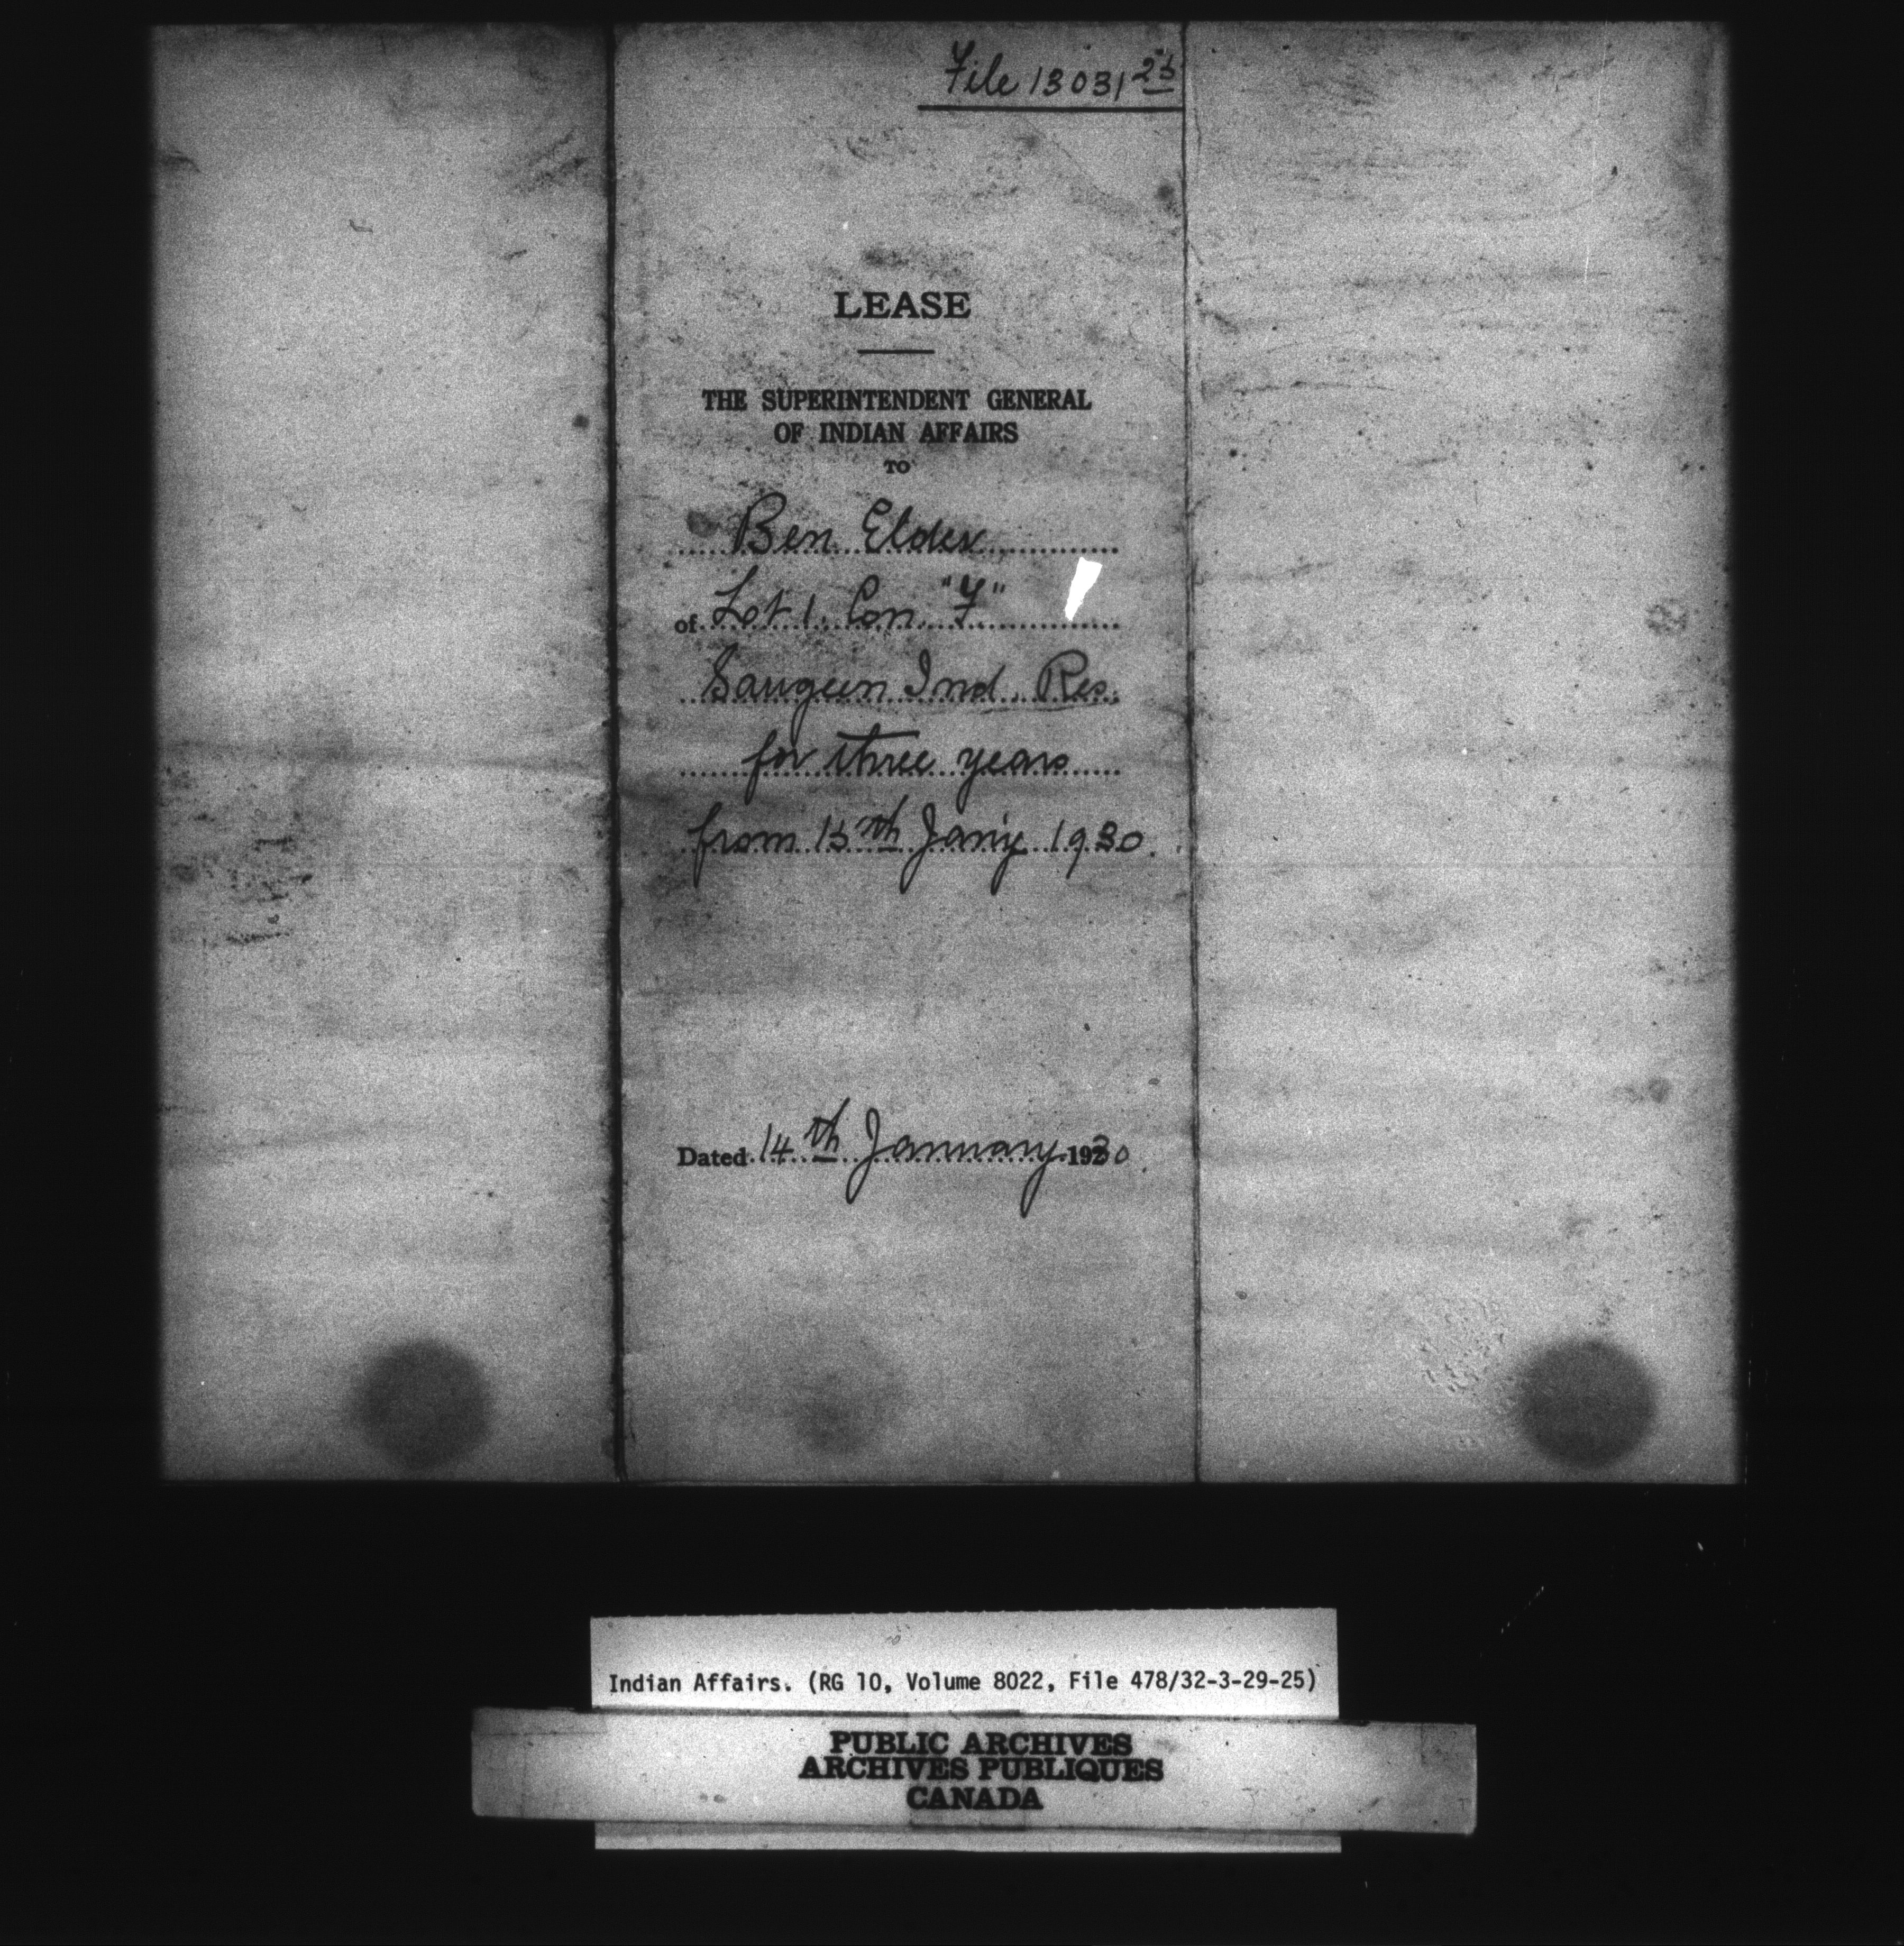 File 13031 25
LEASE
THE SUPERINTENDENT GENERAL
OF INDIAN AFFAIRS
TO
Ben Elder
of Lot 1. Con. "F"
Saugeen Ind. Res.
for three years
from 15th Jan'y 1930.
Dated 14th January 1930.
Indian Affairs. (RG 10, Volume 8022, File 478/32-3-29-25)
PUBLIC ARCHIVES
ARCHIVES PUBLIQUES
CANADA